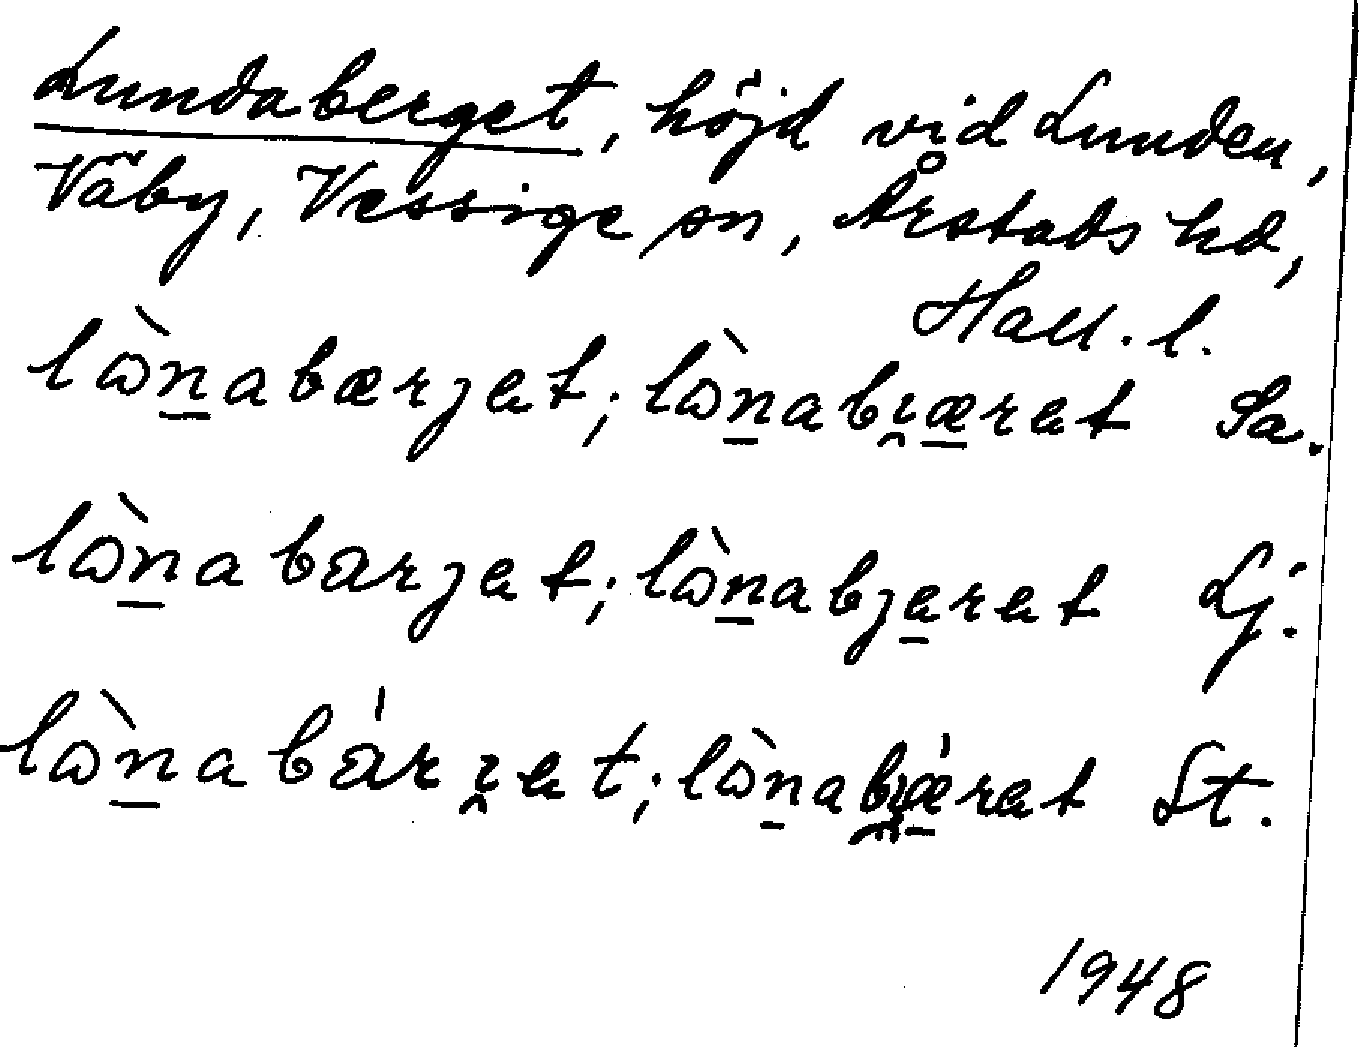 Lundaberget, höjd vid Lunden,
Väby, Vessige sn, Årstads hd,
Hall. l.
lὼn̲abærjet; lὼn̲abı̯æ̲ret Sa.
lὼn̲abarjet; lὼn̲abje̲ret Lj.
lὼn̲abárı̯et; lὼn̲abı̯ǽ̲ret St.
1948